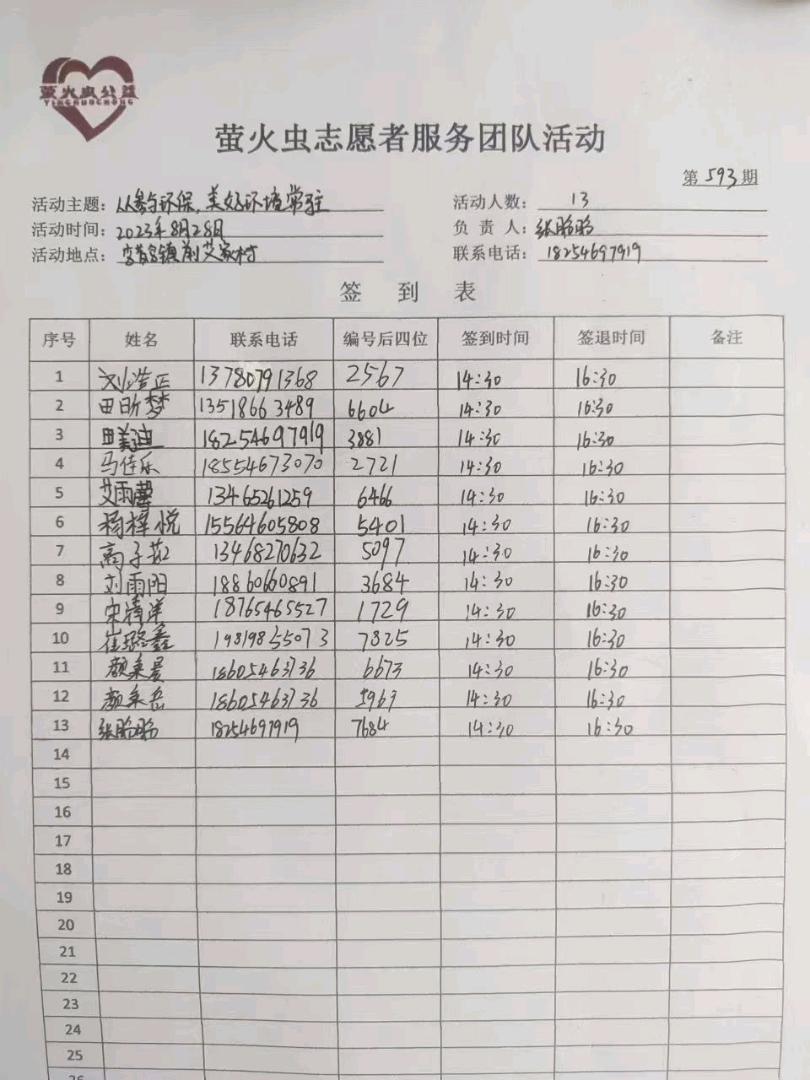 萤火虫公益
YINGHUOCHONG
萤火虫志愿者服务团队活动
第 593 期
活动主题：从参与环保，美好环境常驻 活动人数：13
活动时间：2023年8月28日 负责人：张盼盼
活动地点：镇前艾家村 联系电话：18254697919
签到表
序号 姓名 联系电话 编号后四位 签到时间 签退时间 备注
1 刘浩正 13780791368 2567 14:30 16:30
2 田昕梦 13518663489 6604 14:30 16:30
3 田美迪 18254697919 3881 14:30 16:30
4 马佳乐 18554673070 2721 14:30 16:30
5 艾雨馨 13465261259 6466 14:30 16:30
6 杨梓悦 15564605808 5401 14:30 16:30
7 高子 13468270632 5097 14:30 16:30
8 刘雨阳 18860660891 3684 14:30 16:30
9 宋 18765465527 1729 14:30 16:30
10 崔璐鑫 19819855073 7825 14:30 16:30
11 颜秉景 18605463736 6673 14:30 16:30
12 颜秉岳 18605463736 5963 14:30 16:30
13 张盼盼 18254697919 7684 14:30 16:30
14
15
16
17
18
19
20
21
22
23
24
25
26